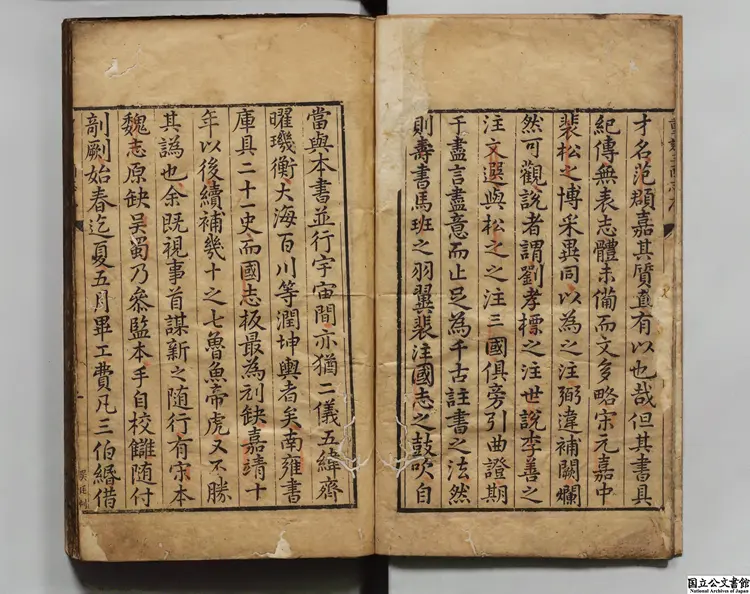 才名范頵嘉其質直有以也哉但其書具
紀傳無表志體未備而文多略宋元嘉中
裴松之博采異同以為之注弼違補闕爛
然可觀說者謂劉孝標之注世說李善之
注文選與松之之注三國俱旁引曲證期
于盡言盡意而止足為千古註書之法然
則壽書馬班之羽翼裴注國志之鼓吹自
當與本書並行宇宙間亦猶二儀五緯齊
曜璣衡大海百川等潤坤輿者矣南雍書
庫具二十一史而國志板最為刓缺嘉靖十
年以後續補幾十之七魯魚帝虎又不勝
其譌也余既視事首謀新之隨行有宋本
魏志原缺吳蜀乃參監本手自校讎隨付
剞劂始春迄夏五月畢工費凡三伯緡借
国立公文書館
National Archives of Japan